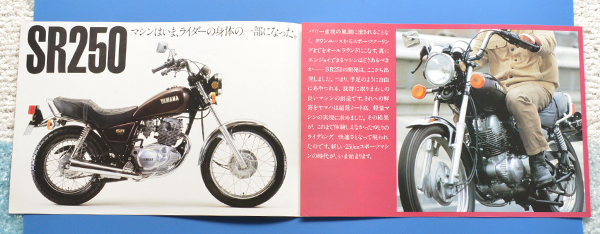 SR250
マシンはいま、ライダーの身体の一部になった。
YAMAHA
パワー重視の風潮に流されることな
く、タウンユースからスポーツツーリン
グまでをオールラウンドにこなす。真に
エンジョイできるマシンはどうあるべき
か——SR250の開発は、ここから出
発しました。つまり、手足のように自由
にあやつれる、抜群に取りまわしの
良いマシンの創造です。それへの解
答をヤマハは超低シート高、軽量マシ
ンの実現に求めました。その結果
が、これまで体験しえなかった乗りの
ライディング 快適さとなって現われ
たのです。新しい250ccスポーツマシン
の時代が、いま始まります。